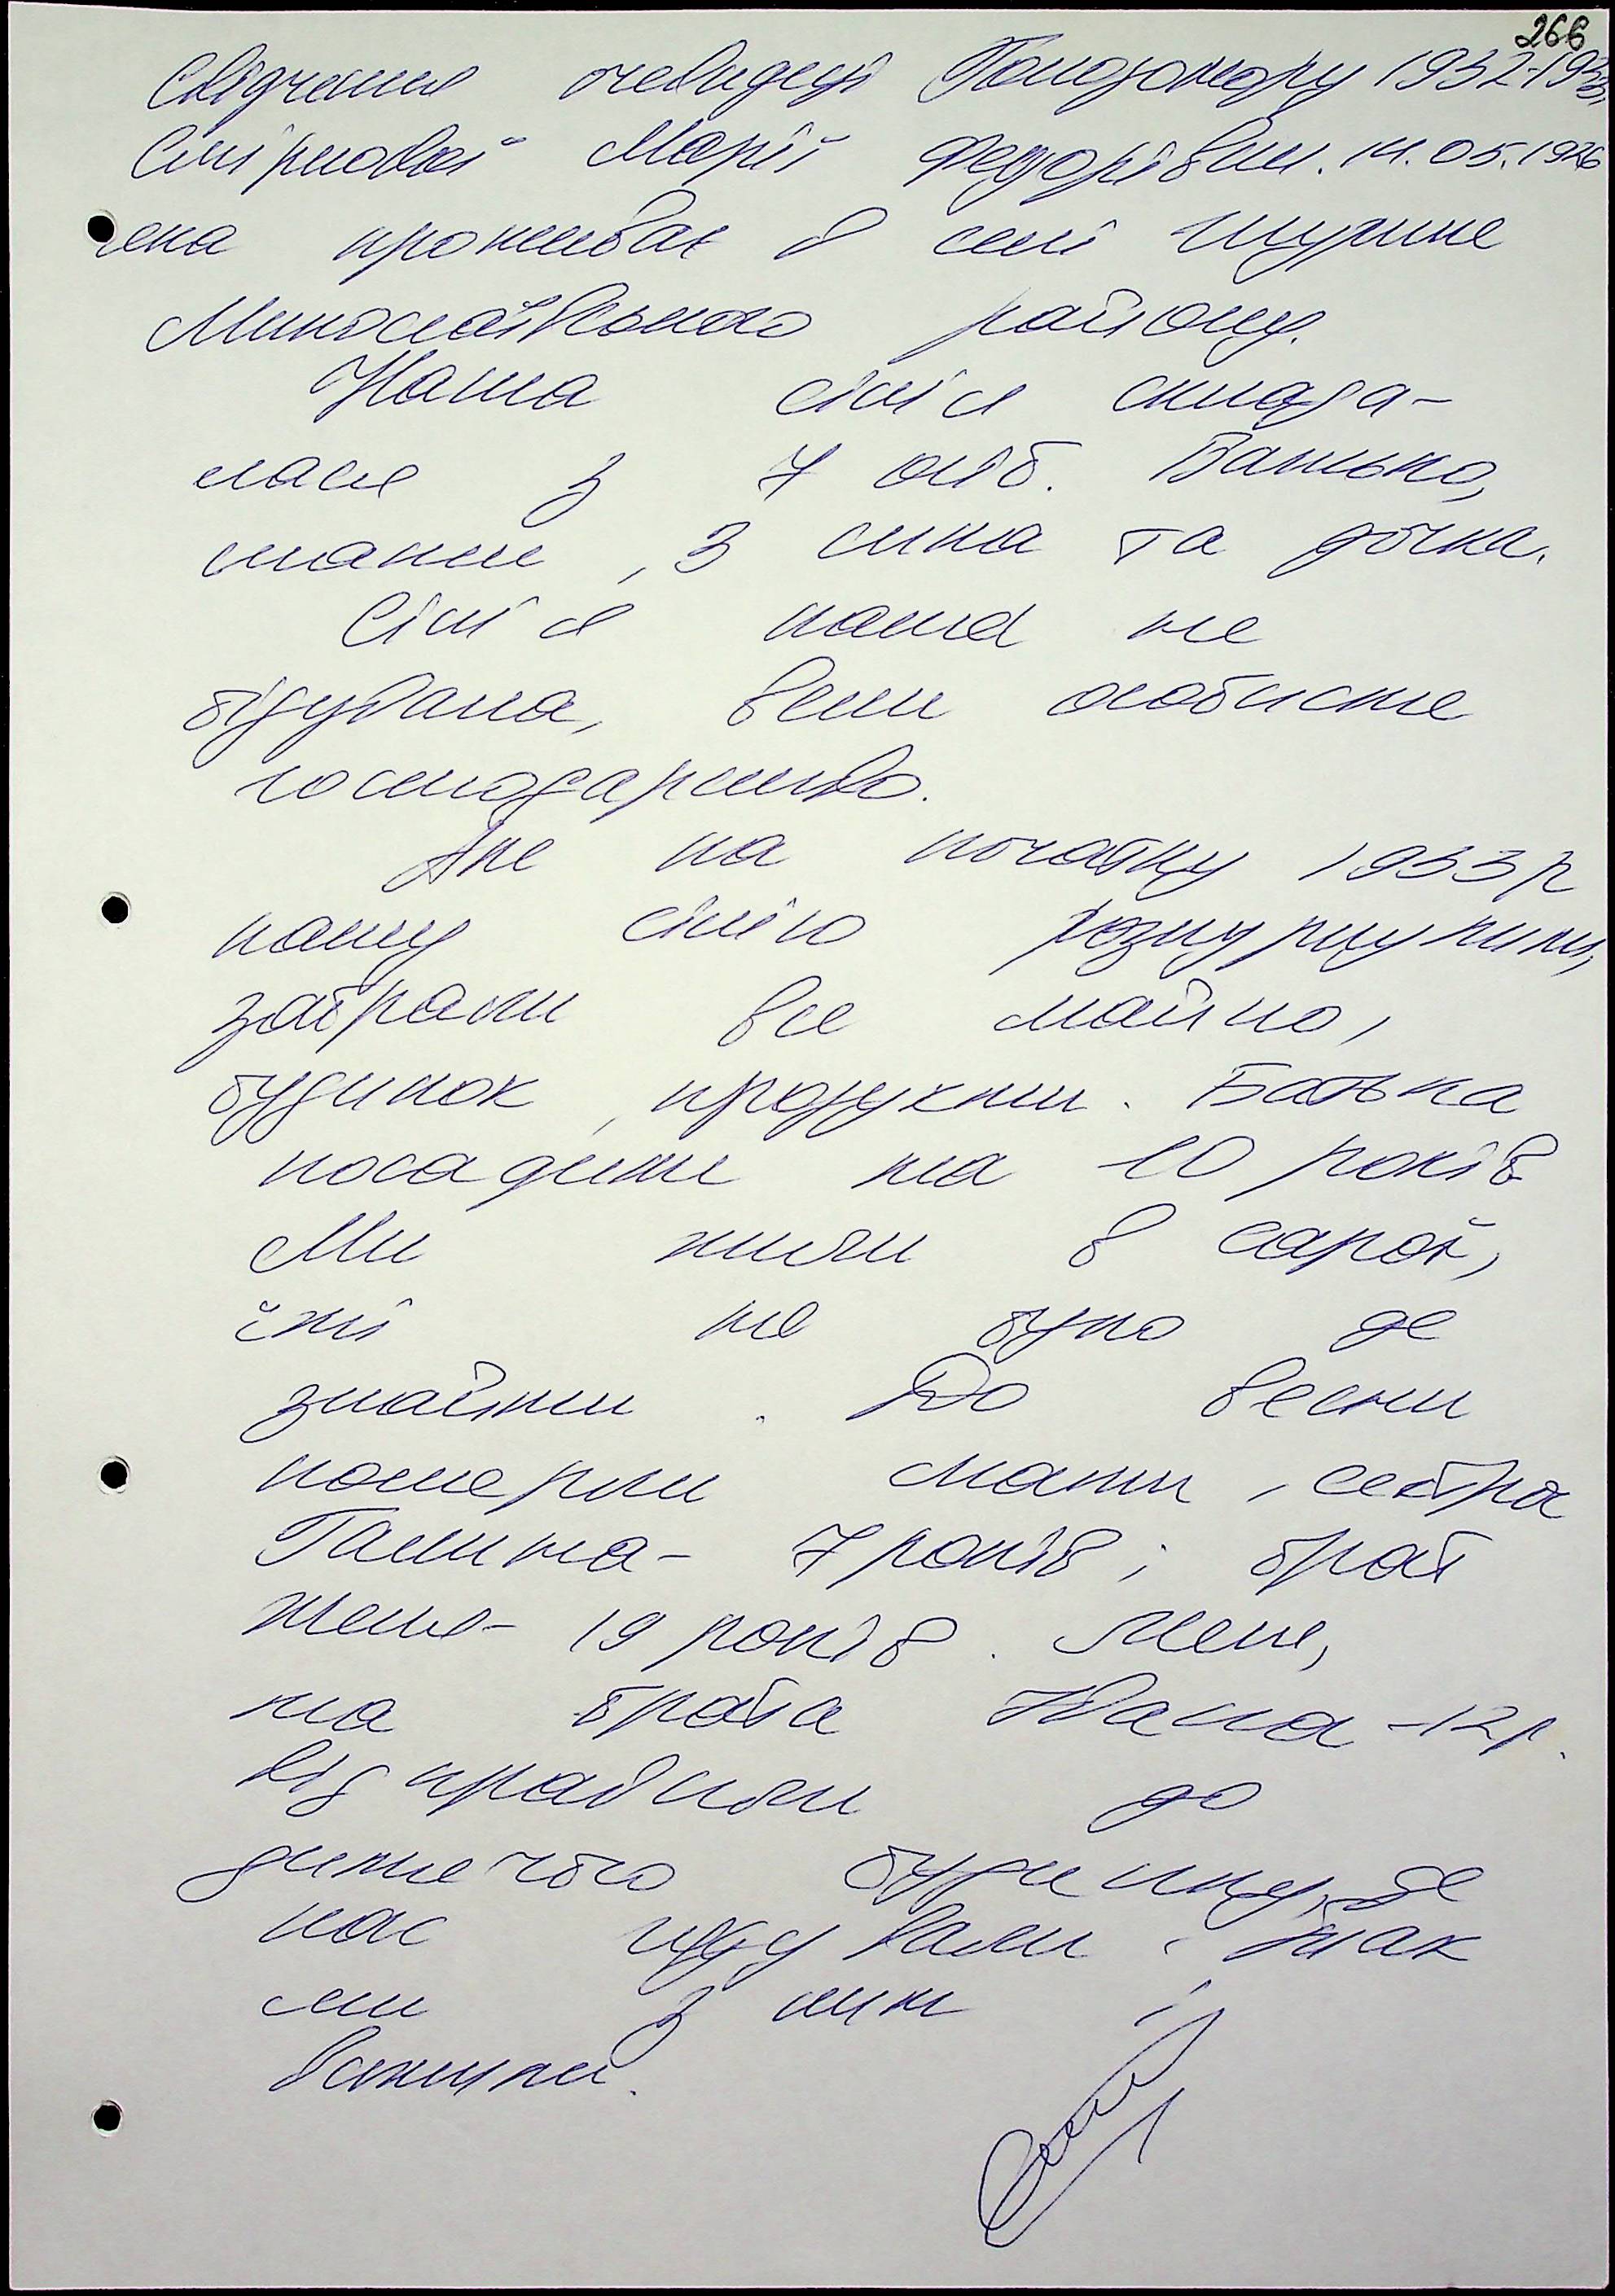 266
Свідчення очевидця Голодомору 1932-1933,
Смірнової Марії Федорівни. 14.05.1926
яка проживає в селі Шуліне
Миколаївського району.
Наша сім'я склада-
лася з 7 осіб. Батько,
мати, 3 сина та дочка.
Сім'я наша не
бідувала, вели особисте
господарство.
Але на початку 1933р
нашу сім'ю розкуркулили,
забрали все майно,
будинок, продукти. Батька
посадили на 10 років
Ми жили в сараї,
їжі не було де
знайти. До весни
померли мати, сестра
Галина - 7 років; брат
Женя - 19 років. Мене,
та брата Івана - 12р.
відправили до
дитячого будинку, де
нас годували і так
ми з ним і
вижили.